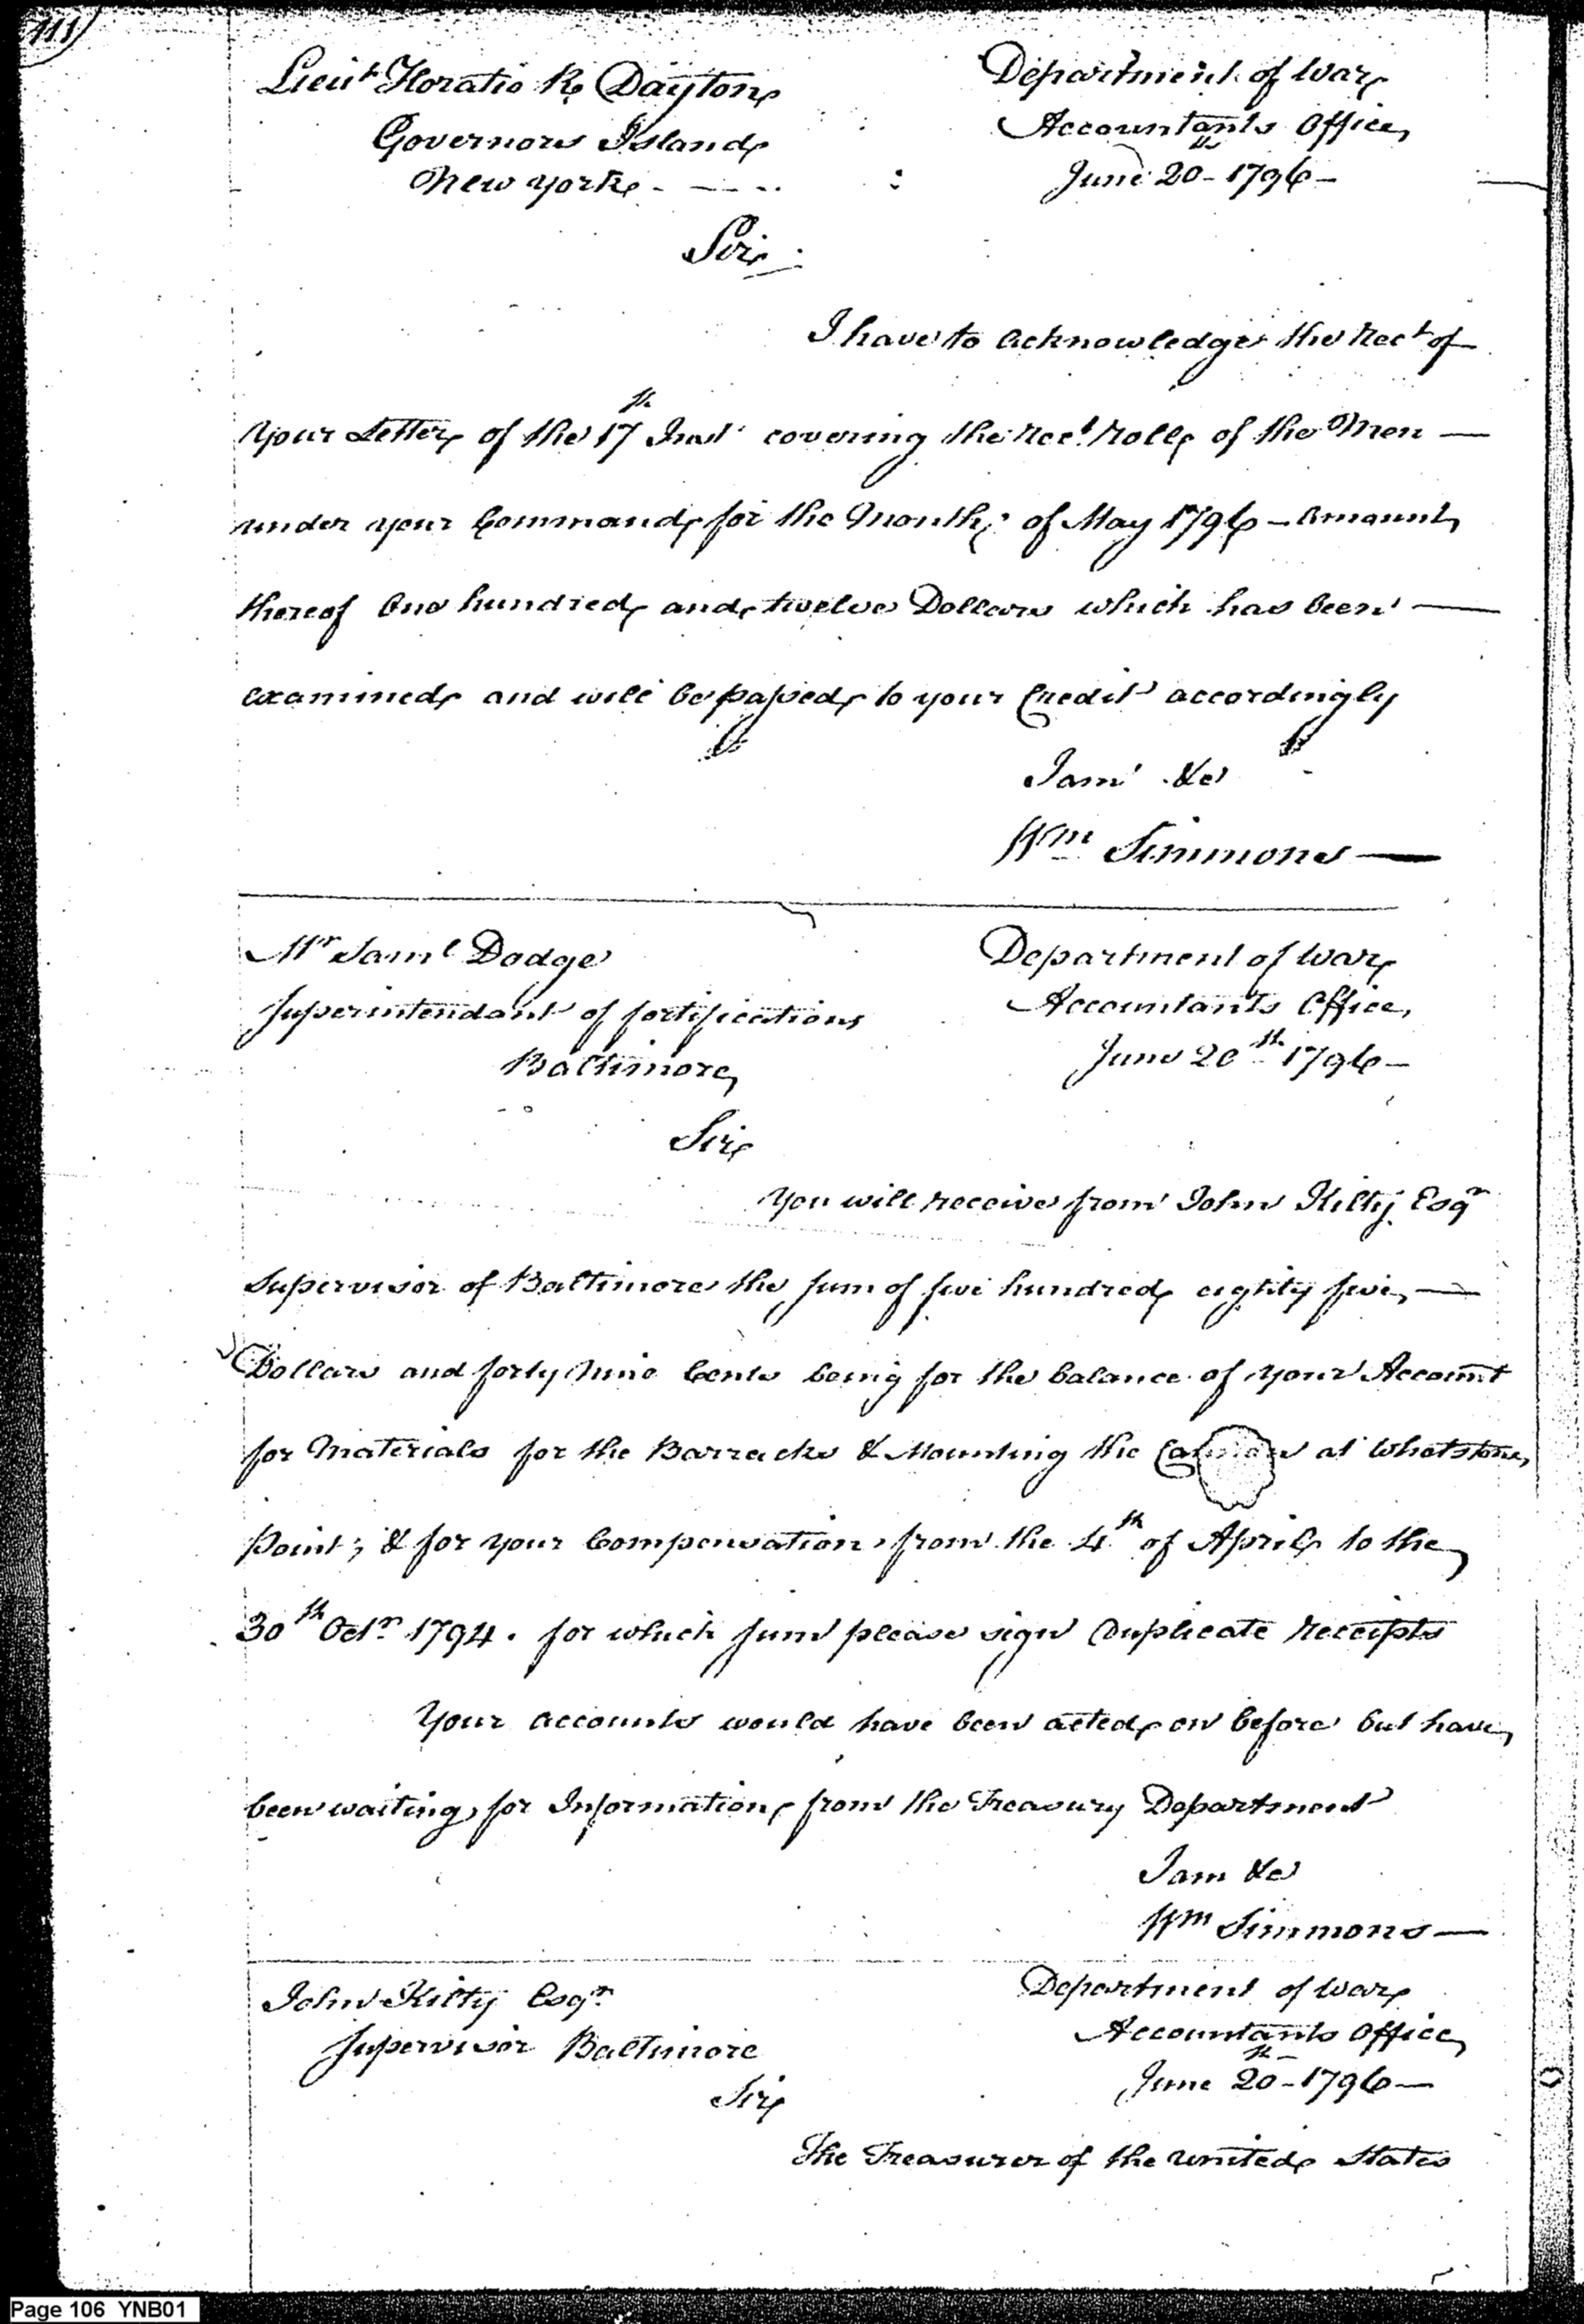 111
Lieut Horatio R Dayton
Governors Island
New York
Department of War
Accountants Office
June 20th 1796
Sir
I have to acknowledge the Rect of
your Letter of the 17th Inst covering the Rect Roll of the Men
under your Command for the Month of May 1796 - Amount
thereof One hundred and twelve Dollars which has been
examined and will be passed to your Credit accordingly
I am &c
Wm Simmons
Mr Saml Dodge
Superintendant of fortifications
Baltimore
Department of War
Accountants Office
June 20th 1796
Sir
You will receive from John Kilty Esqr
Supervisor of Baltimore the sum of five hundred eighty five
Dollars and forty nine Cents being for the balance of your Account
for Materials for the Barracks & Mounting the Cannon at Whetstone
Point; & for your Compensation from the 4th of April to the
30th Octr 1794. for which sum please sign Duplicate Receipts
Your accounts would have been acted on before but have
been waiting for Information from the Treasury Department
I am &c
Wm Simmons
John Kilty Esqr
Supervisor Baltimore
Department of War
Accountants Office
June 20th 1796
Sir
The Treasurer of the United States
Page 106 YNB01